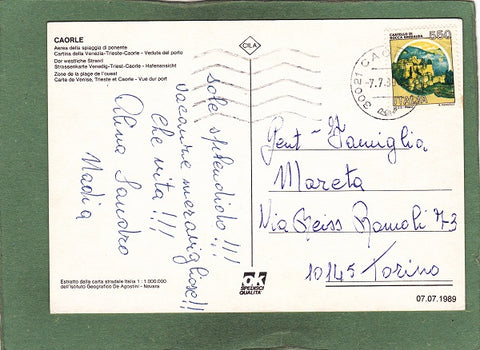 CAORLE
Aerea della spiaggia di ponente
Cartina della Venezia-Trieste-Caorle - Veduta del porto
Der westliche Strand
Strassenkarte Venedig-Triest-Caorle - Hafenansicht
Zone de la plage de l'ouest
Carte de Venise, Trieste et Caorle - Vue dur port
CILA
CASTELLO DI
ROCCA SINIBALDA
550
ITALIA
30021 CAO
-7.7.8
sole splendido!!!
vacanze meravigliose!!
Che vita!!!
Sandro
Nadia
Gent. Famiglia
Mareta
Via Reiss Romoli 73
10145 Torino
Estratto dalla carta stradale Italia 1 : 1.000.000
dell'Istituto Geografico De Agostini - Novara
OK
SPEDISCI
QUALITA'
07.07.1989